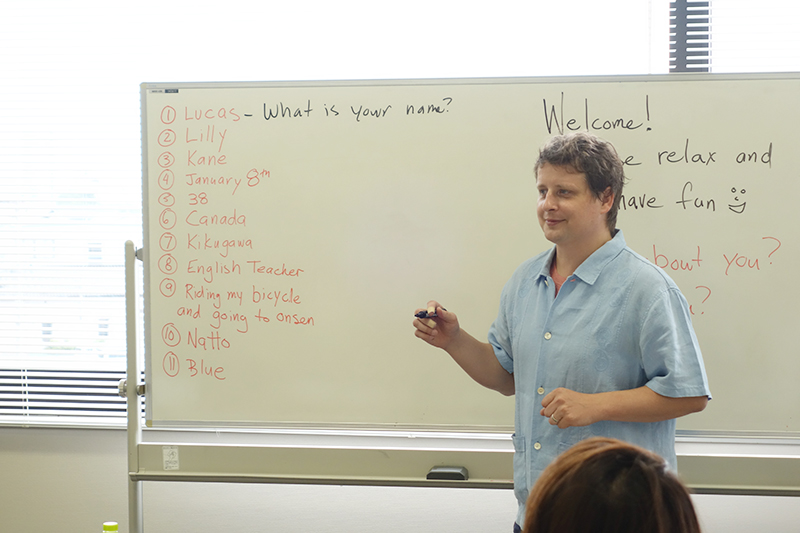 ① Lucas - What is your name?
② Lilly
③ Kane
④ January 8th
⑤ 38
⑥ Canada
⑦ Kikugawa
⑧ English Teacher
⑨ Riding my bicycle
and going to onsen
⑩ Natto
⑪ Blue
Welcome!
relax and
have fun
bout you?
?